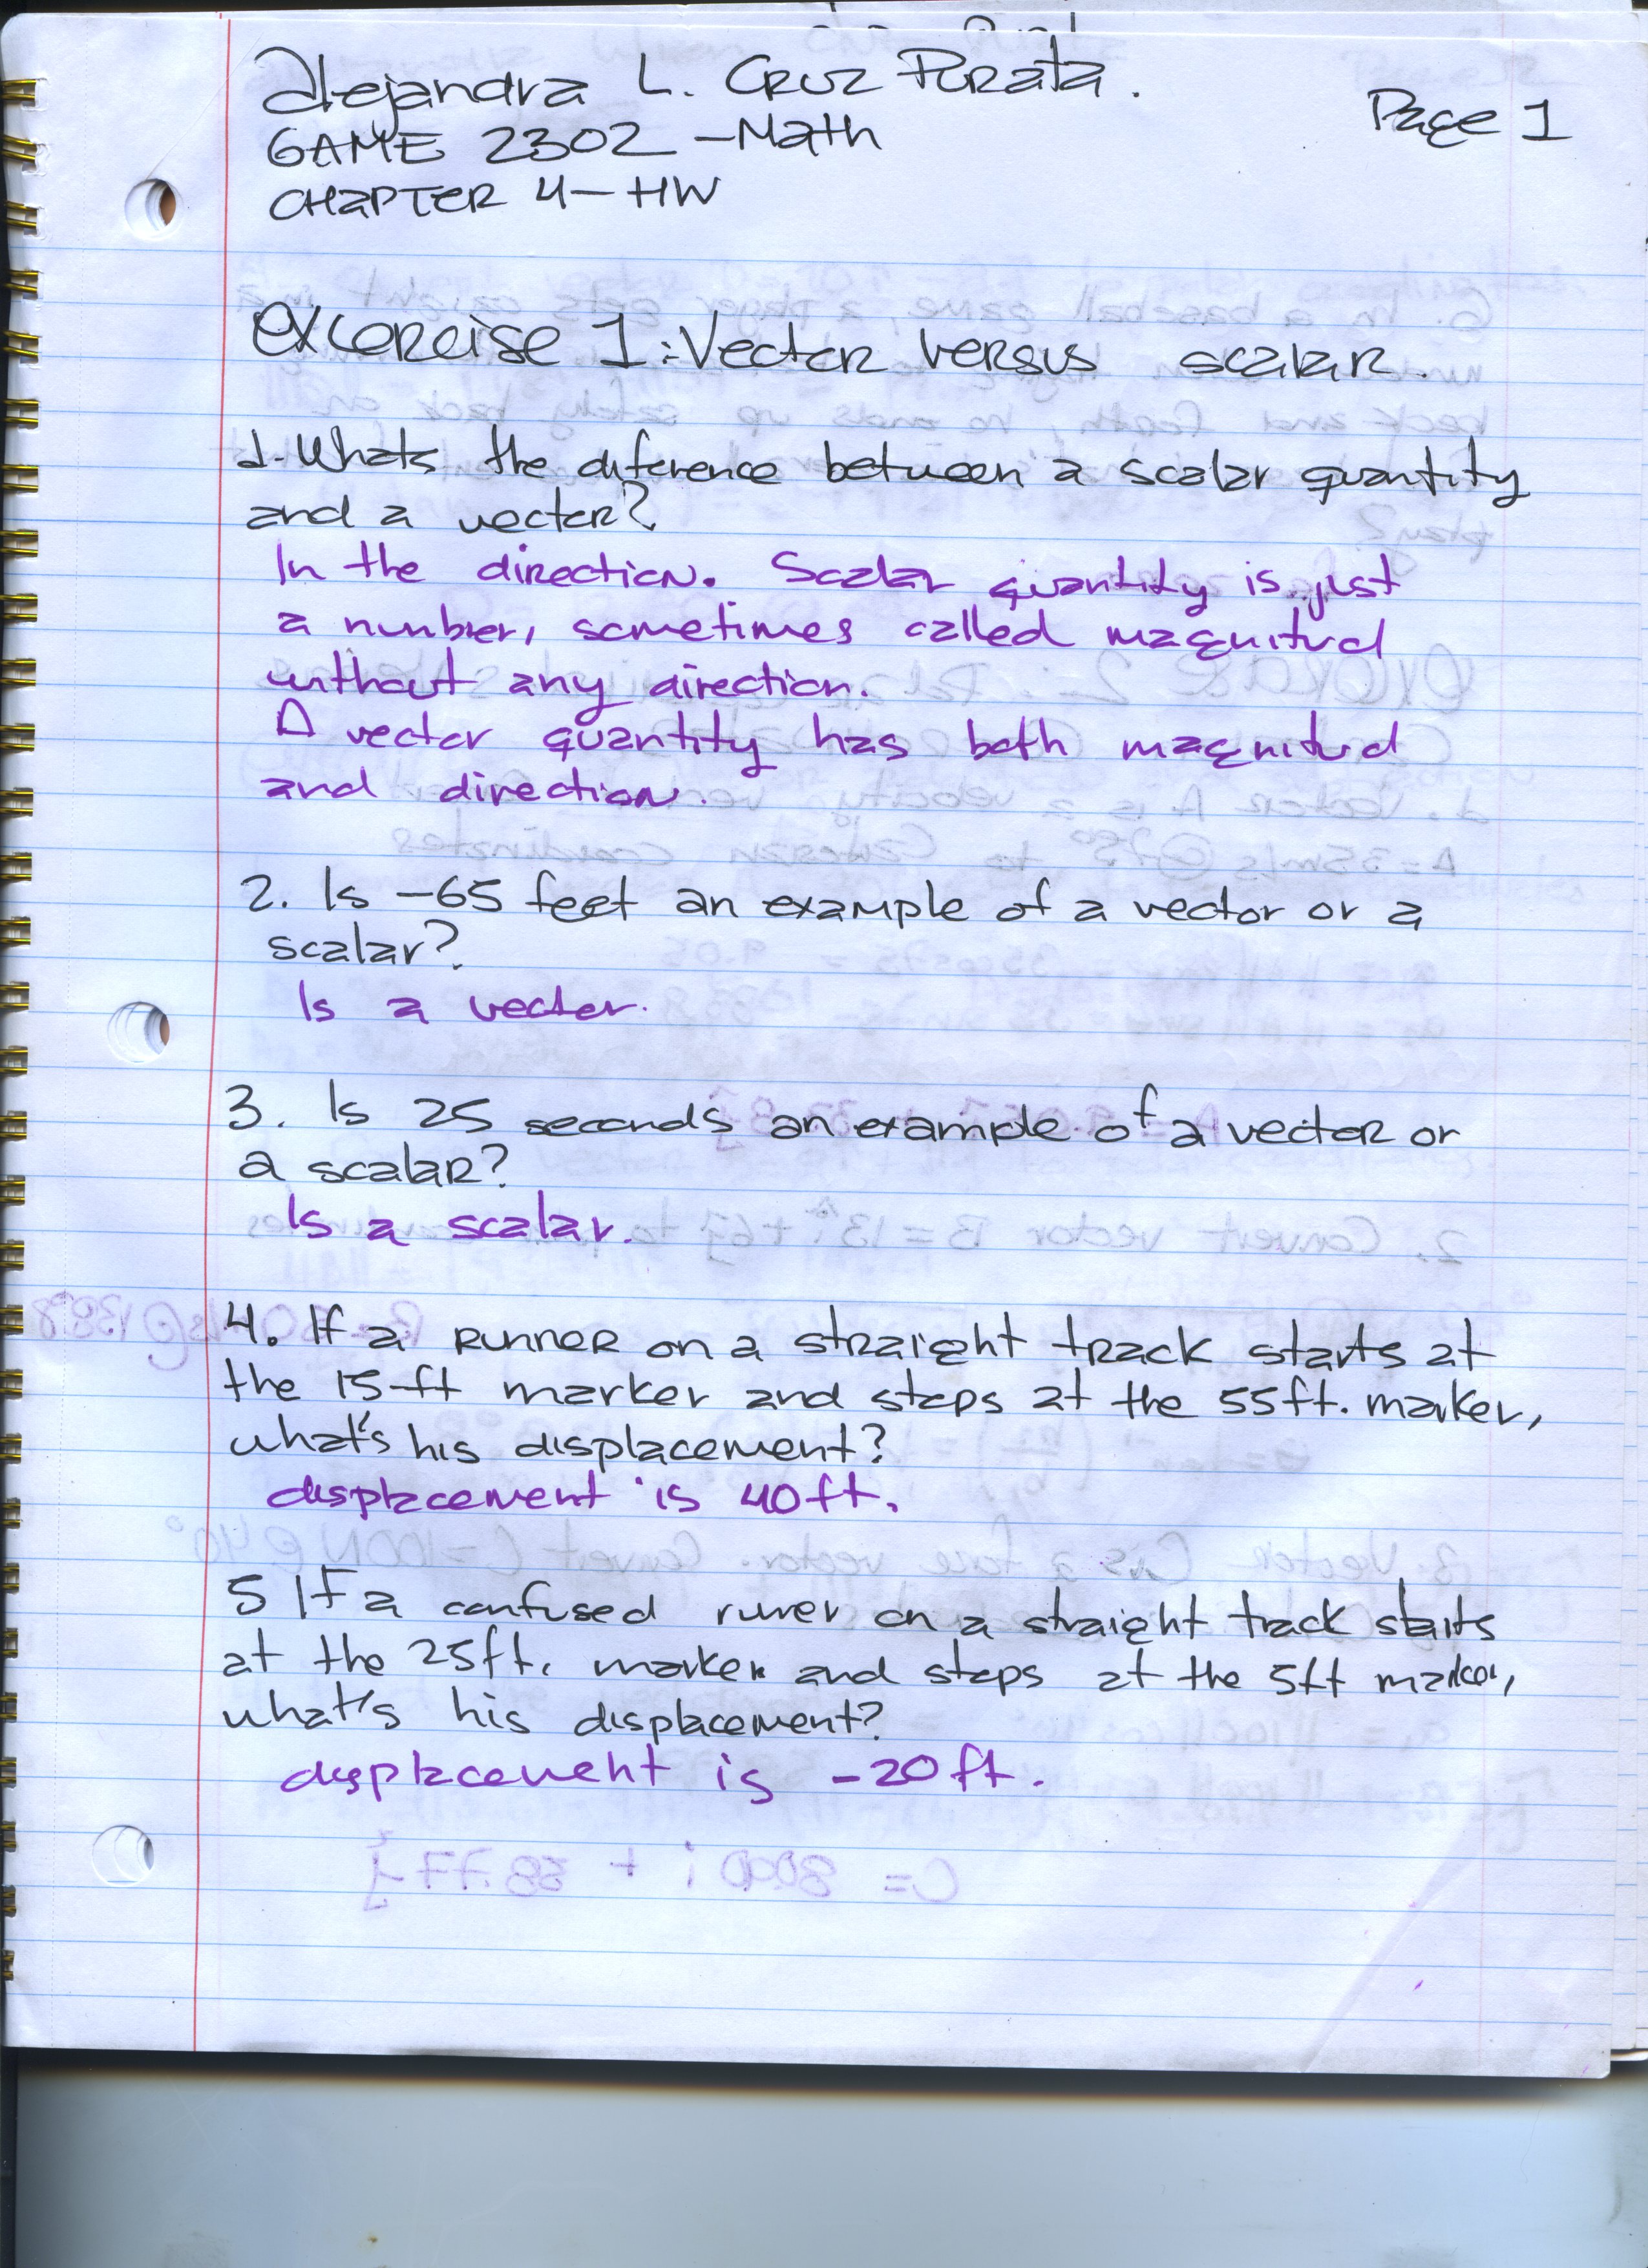 Alejandra L. Cruz Purata.
Page 1
GAME 2302 - Math
CHAPTER 4 - HW
Excercise 1: Vector versus scalar.
1. Whats the diference between a scalar quantity
and a vector?
In the direction. Scalar quantity is just
a number, sometimes called magnitud
without any direction.
A vector quantity has both magnitud
and direction.
2. Is -65 feet an example of a vector or a
scalar?
Is a vector.
3. Is 25 seconds an example of a vector or
a scalar?
Is a scalar.
4. If a runner on a straight track starts at
the 15-ft marker and stops at the 55ft. marker,
what's his displacement?
displacement is 40ft.
5 If a confused runer on a straight track starts
at the 25ft. marker and stops at the 5ft marker,
what's his displacement?
displacement is -20ft.